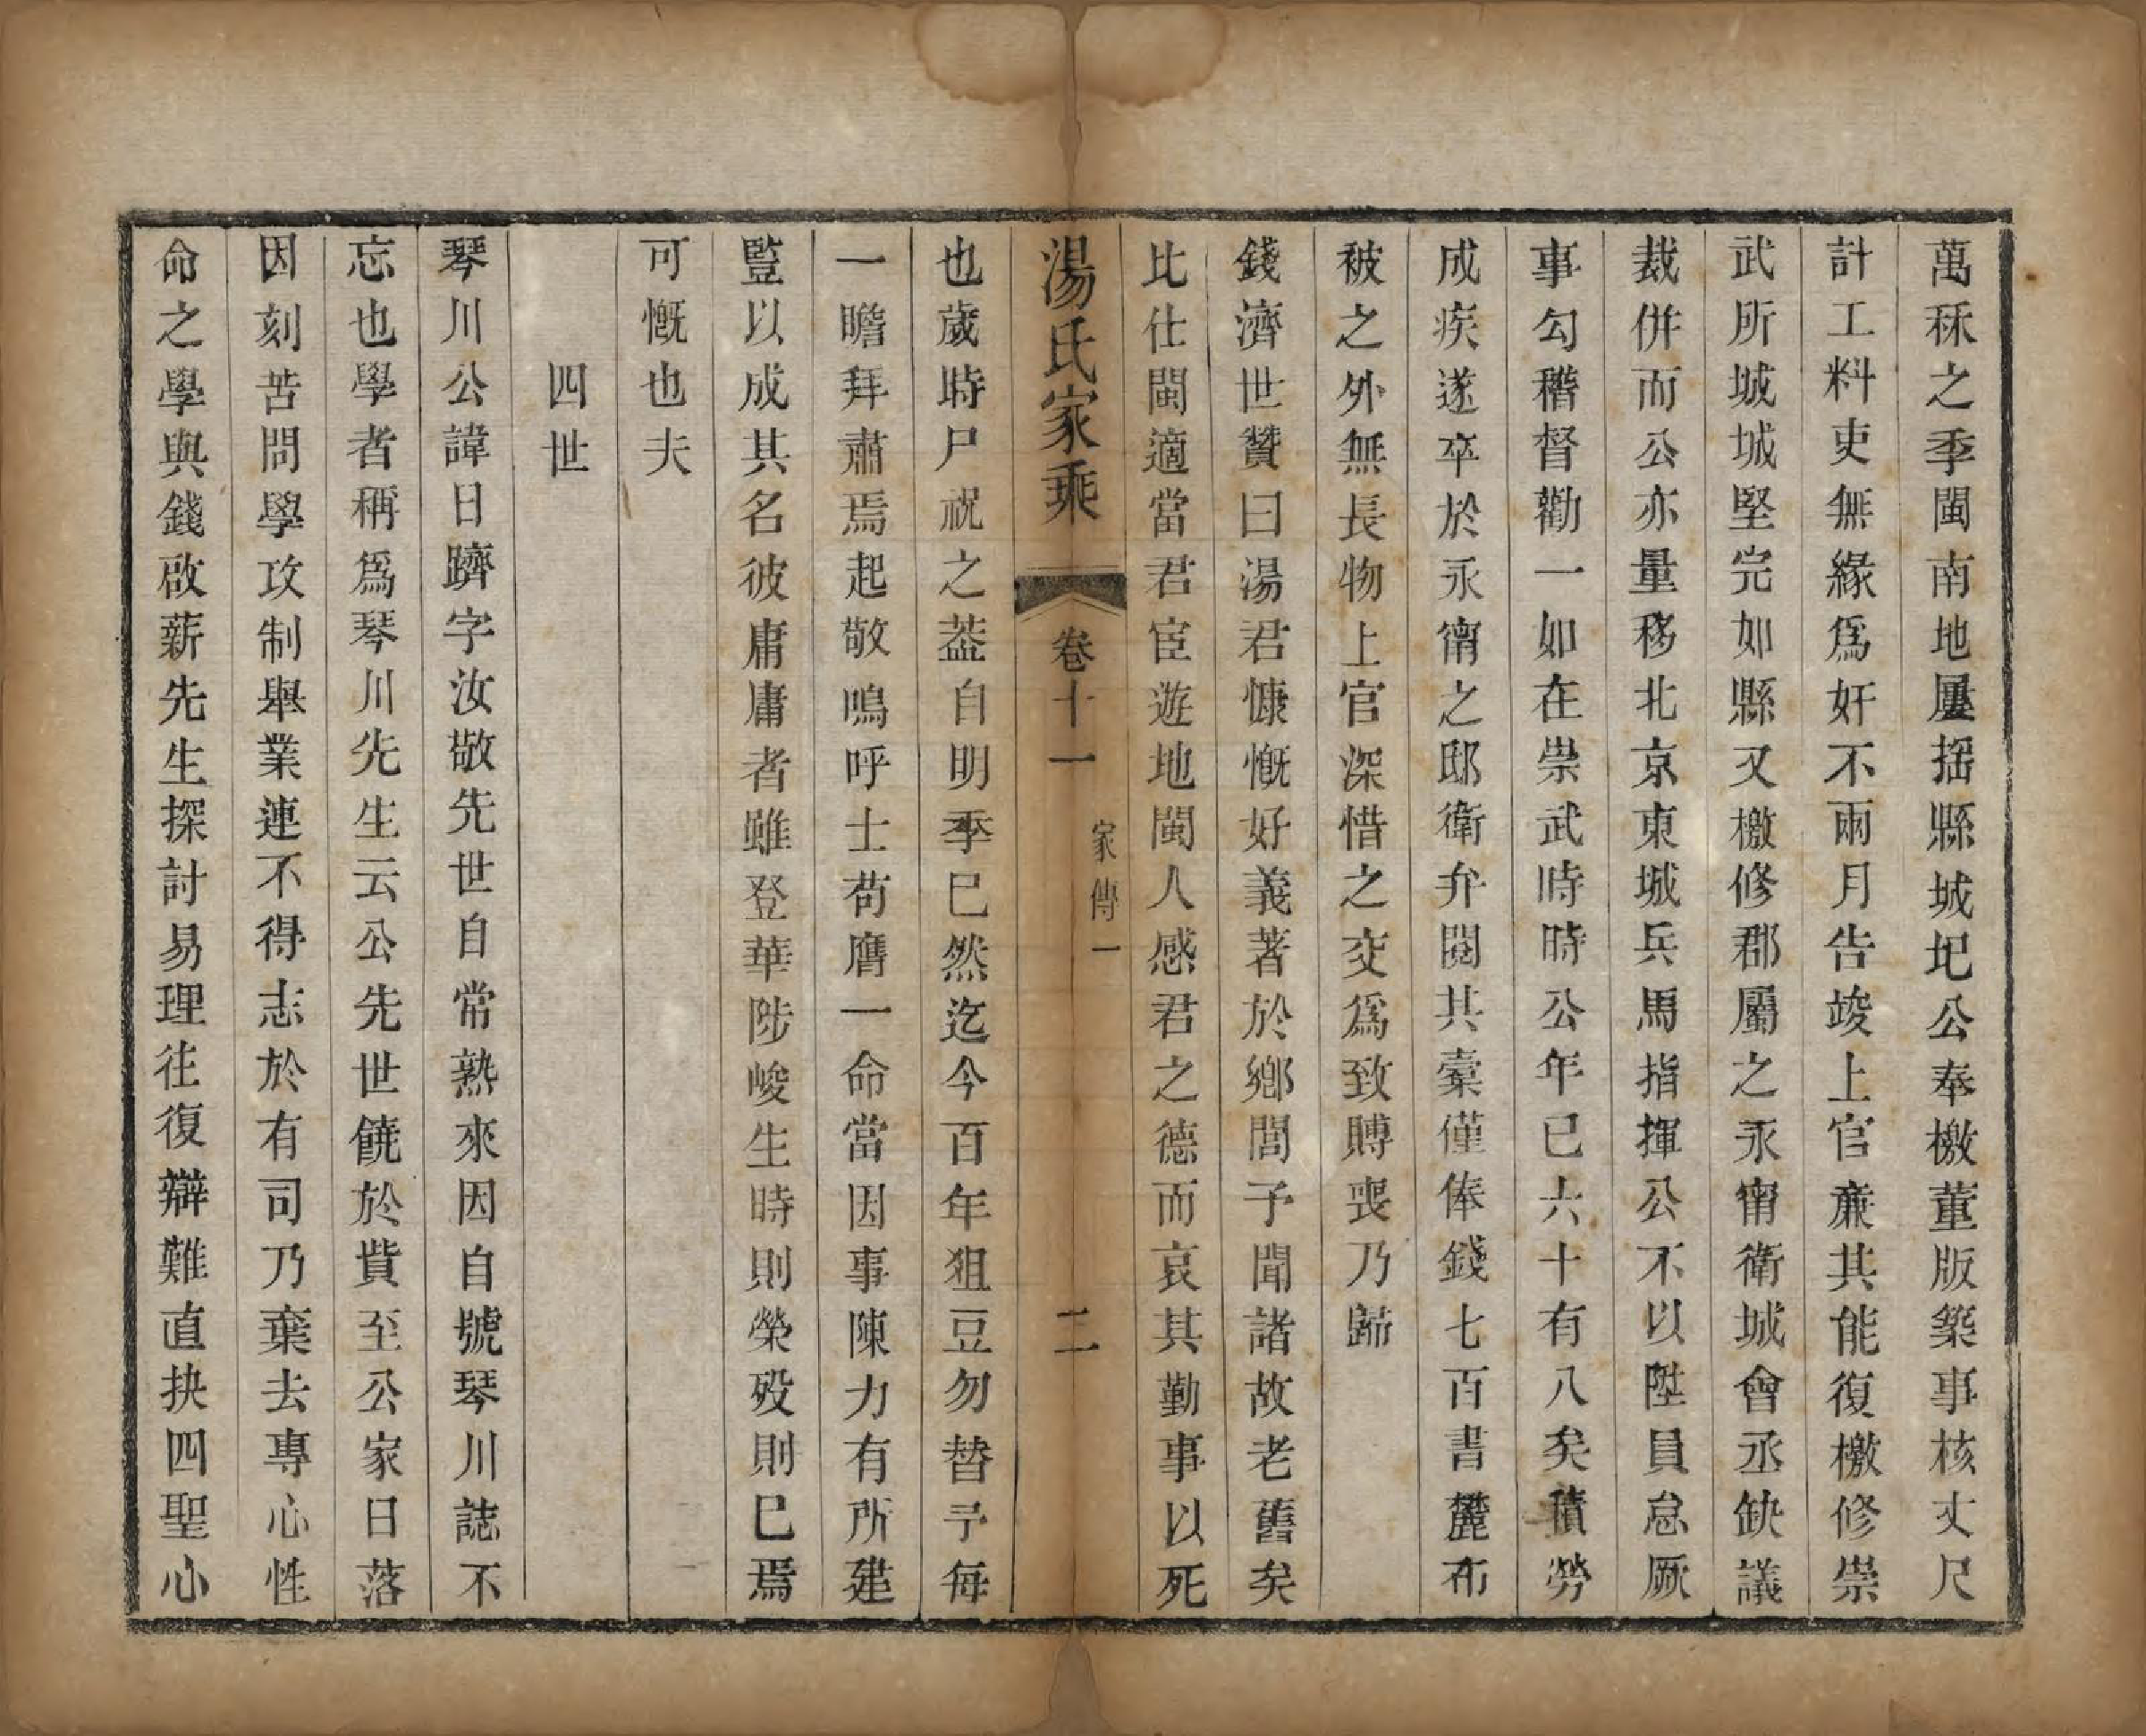 萬秝之季閩南地屢揺縣城圯公奉檄董版築事核丈尺
計工料吏無緣爲奸不兩月告竣上官亷其能復檄修崇
武所城城堅完如縣又檄修郡屬之永甯衛城會丞缺議
裁併而公亦量移北京東城兵馬指揮公不以陞員怠厥
事勾稽督勸一如在崇武時時公年已六十有八矣積勞
成疾遂卒於永甯之邸衛弁閱其橐僅俸錢七百書麓布
被之外無長物上官深惜之交爲致賻喪乃歸
錢濟世贊曰湯君慷慨好義著於鄕閭予聞諸故老舊矣
比仕閩適當君宦遊地閩人感君之德而哀其勤事以死
湯氏家乘 卷十一 家傳一 二
也歲時尸祝之葢自明季已然迄今百年狙豆勿替予每
一瞻拜肅焉起敬嗚呼士苟膺一命當因事陳力有所建
豎以成其名彼庸庸者雖登華陟峻生時則榮歿則已焉
可慨也夫
四世
琴川公諱日躋字汝敬先世自常熟來因自號琴川誌不
忘也學者稱爲琴川先生云公先世饒於貲至公家日落
因刻苦問學攻制舉業連不得志於有司乃棄去專心性
命之學與錢啟薪先生探討易理往復辯難直抉四聖心